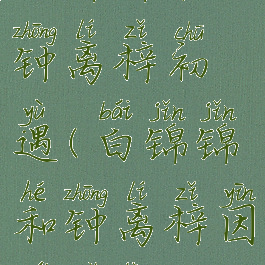 zhōng lí zǐ chū
钟离梓初
yù bái jǐn jǐn
遇(白锦锦
hé zhōng lí zǐ yīn
和钟离梓因